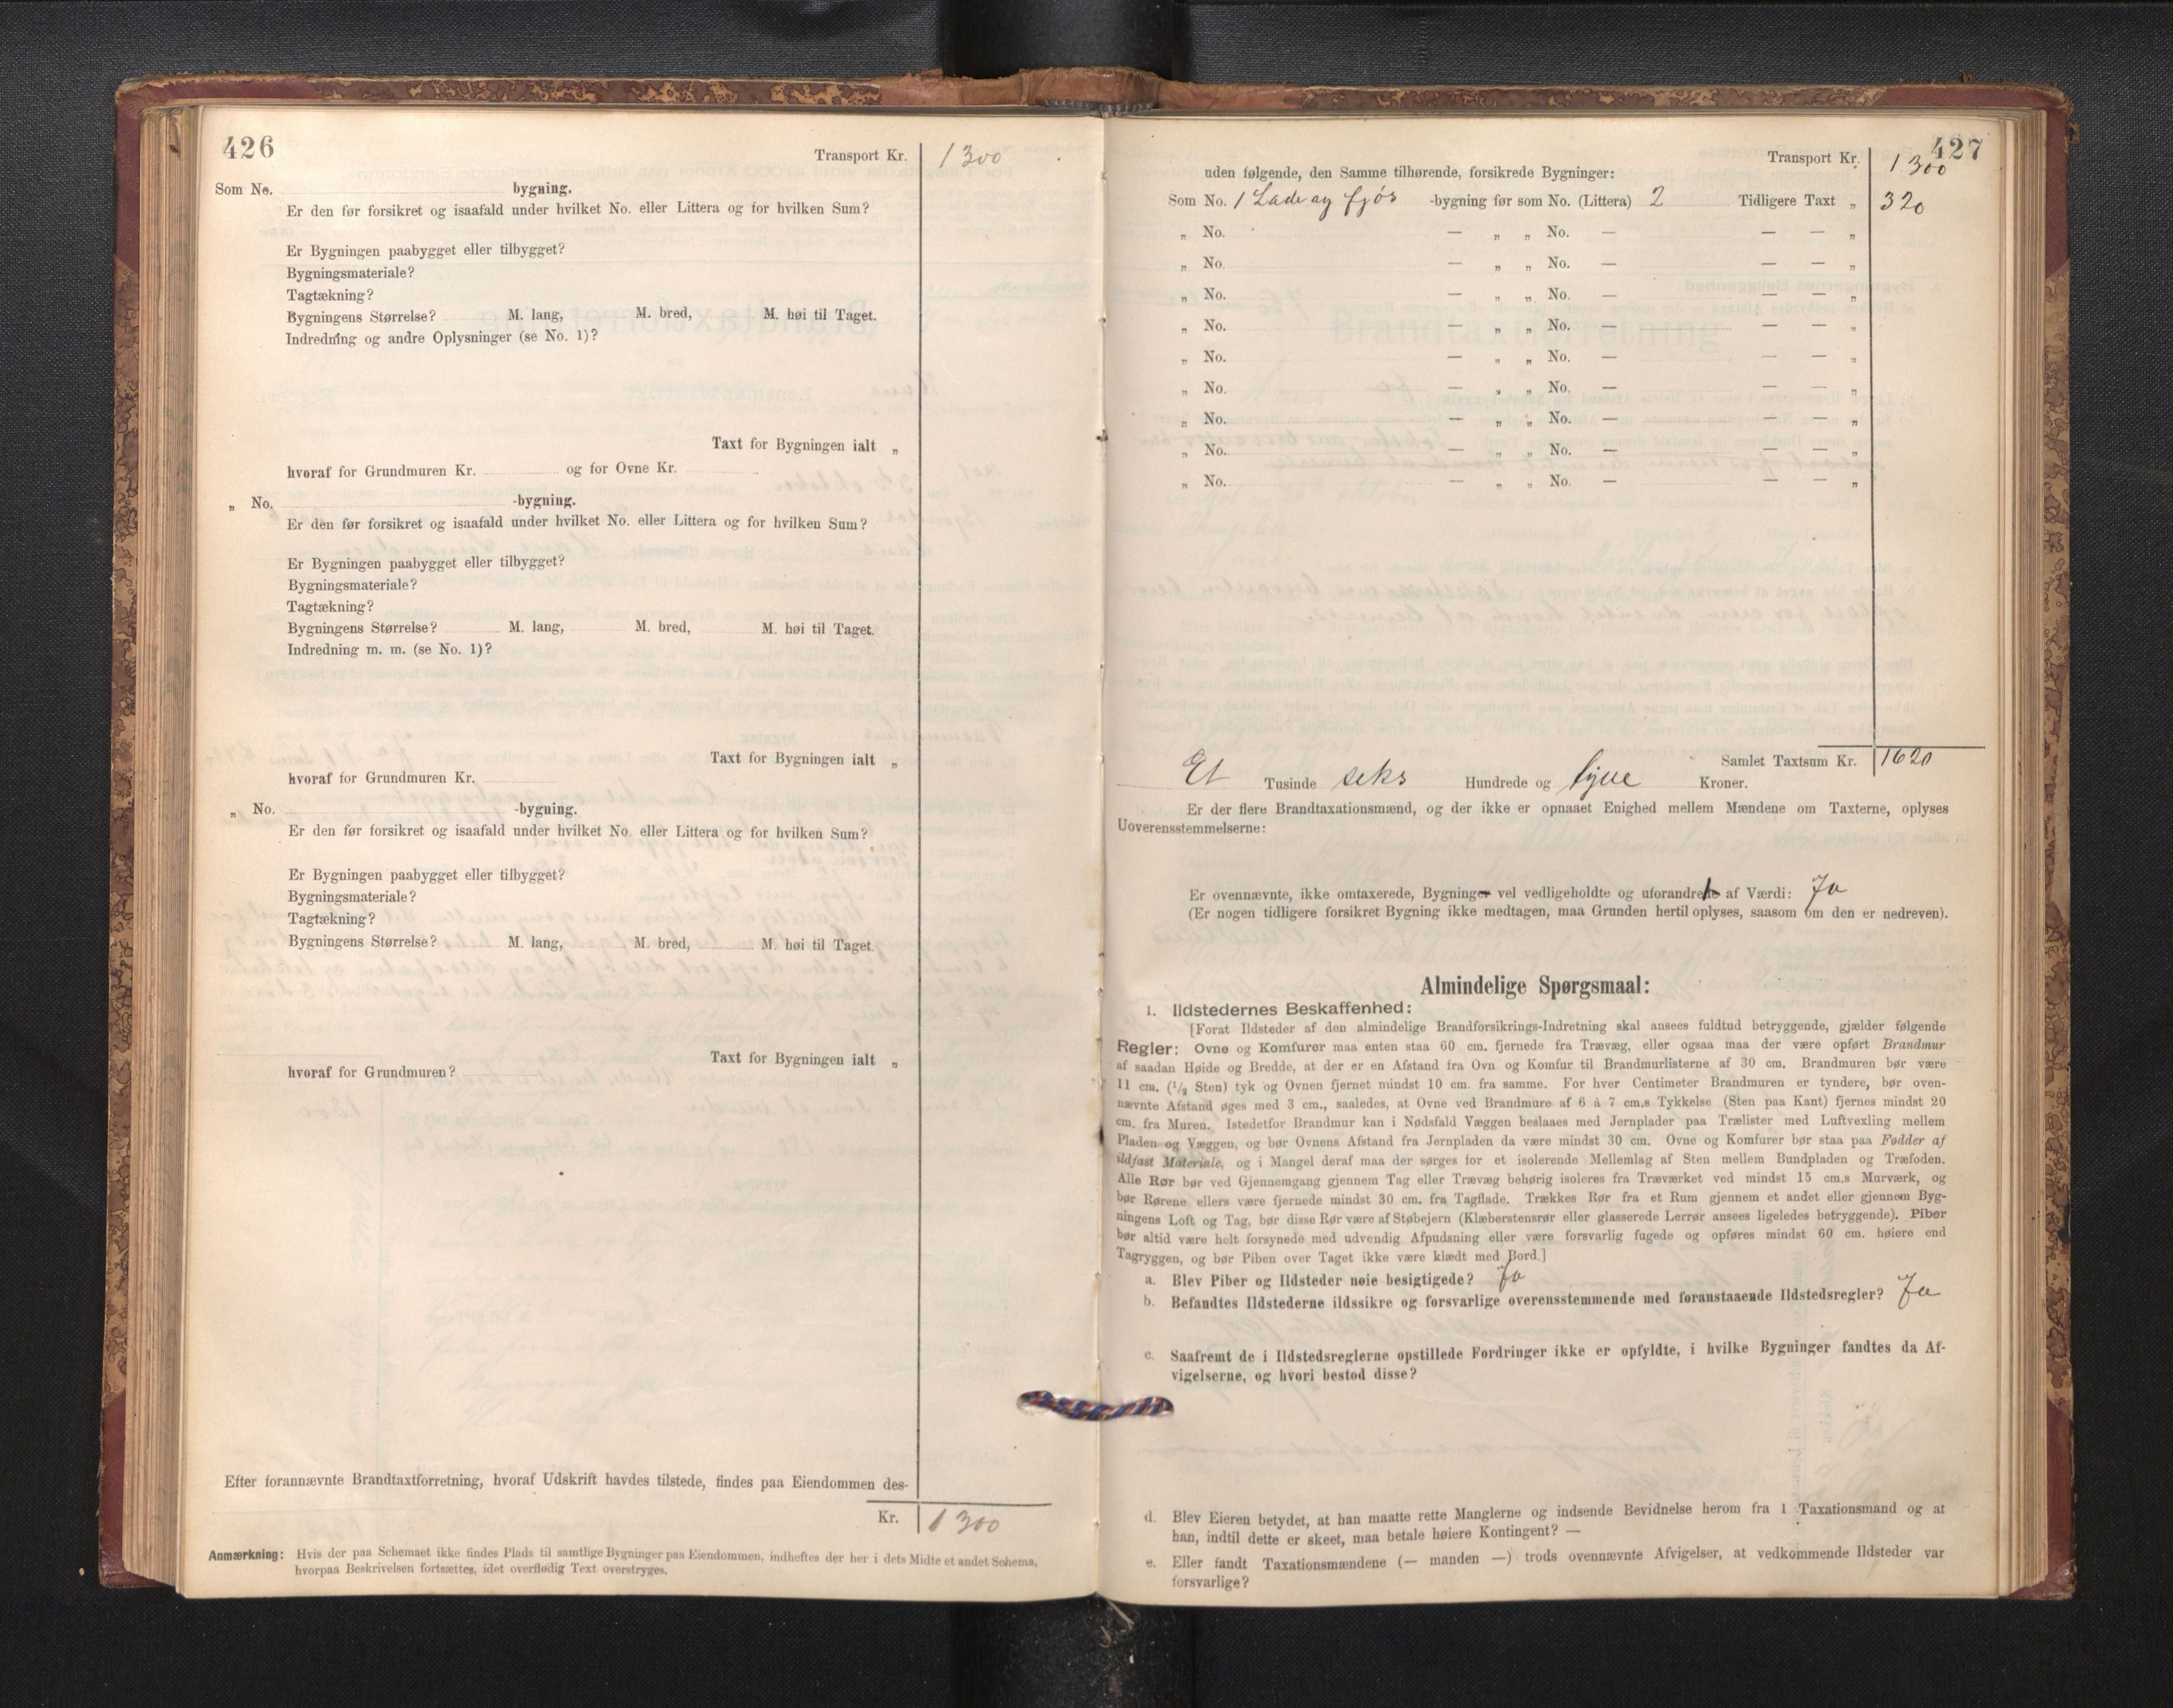 426
Transport Kr. 1300
Som No. bygning.
Er den før forsikret og isaafald under hvilket No. eller Littera og for hvilken Sum?
Er Bygningen paabygget eller tilbygget?
Bygningsmateriale?
Tagtækning?
Bygningens Størrelse? M. lang, M. bred, M. høi til Taget.
Indredning og andre Oplysninger (se No. 1)?
Taxt for Bygningen ialt „
hvoraf for Grundmuren Kr. og for Ovne Kr.
„ No. -bygning.
Er den før forsikret og isaafald under hvilket No. eller Littera og for hvilken Sum?
Er Bygningen paabygget eller tilbygget?
Bygningsmateriale?
Tagtækning?
Bygningens Størrelse? M. lang, M. bred, M. høi til Taget.
Indredning m. m. (se No. 1)?
Taxt for Bygningen ialt „
hvoraf for Grundmuren Kr.
„ No. -bygning.
Er den før forsikret og isaafald under hvilket No. eller Littera og for hvilken Sum?
Er Bygningen paabygget eller tilbygget?
Bygningsmateriale?
Tagtækning?
Bygningens Størrelse? M. lang, M. bred, M. høi til Taget.
Taxt for Bygningen ialt „
hvoraf for Grundmuren?
Efter forannævnte Brandtaxtforretning, hvoraf Udskrift havdes tilstede, findes paa Eiendommen des-
Kr. 1300
Anmærkning: Hvis der paa Schemaet ikke findes Plads til samtlige Bygninger paa Eiendommen, indheftes der her i dets Midte et andet Schema,
hvorpaa Beskrivelsen fortsættes, idet overflødig Text overstryges.
427
Transport Kr. 1300
uden følgende, den Samme tilhørende, forsikrede Bygninger:
Som No. 1 Lade og fjøs -bygning før som No. (Littera) 2 Tidligere Taxt „ 320
„ No. — „ „ No. — — — „
„ No. — „ „ No. — — — „
„ No. — „ „ No. — — — „
„ No. — „ „ No. — — — „
„ No. — „ „ No. — — — „
„ No. — „ „ No. — — — „
„ No. — „ „ No. — — — „
„ No. — „ „ No. — — — „
„ No. — „ „ No. — — — „
Samlet Taxtsum Kr. 1620
Et Tusinde seks Hundrede og tyve Kroner.
Er der flere Brandtaxationsmænd, og der ikke er opnaaet Enighed mellem Mændene om Taxterne, oplyses
Uoverensstemmelserne:
Er ovennævnte, ikke omtaxerede, Bygninger vel vedligeholdte og uforandrete af Værdi: Ja
(Er nogen tidligere forsikret Bygning ikke medtagen, maa Grunden hertil oplyses, saasom om den er nedreven).
Almindelige Spørgsmaal:
1. Ildstedernes Beskaffenhed:
[Forat Ildsteder af den almindelige Brandforsikrings-Indretning skal ansees fuldtud betryggende, gjælder følgende
Regler: Ovne og Komfurer maa enten staa 60 cm. fjernede fra Trævæg, eller ogsaa maa der være opført Brandmur
af saadan Høide og Bredde, at der er en Afstand fra Ovn og Komfur til Brandmurlisterne af 30 cm. Brandmuren bør være
11 cm. (½ Sten) tyk og Ovnen fjernet mindst 10 cm. fra samme. For hver Centimeter Brandmuren er tyndere, bør oven-
nævnte Afstand øges med 3 cm., saaledes, at Ovne ved Brandmure af 6 à 7 cm.s Tykkelse (Sten paa Kant) fjernes mindst 20
cm. fra Muren. Istedetfor Brandmur kan i Nødsfald Væggen beslaaes med Jernplader paa Trælister med Luftvexling mellem
Pladen og Væggen, og bør Ovnens Afstand fra Jernpladen da være mindst 30 cm. Ovne og Komfurer bør staa paa Fødder af
ildfast Materiale, og i Mangel deraf maa der sørges for et isolerende Mellemlag af Sten mellem Bundpladen og Træfoden.
Alle Rør bør ved Gjennemgang gjennem Tag eller Trævæg behørig isoleres fra Træværket ved mindst 15 cm.s Murværk, og
bør Rørene ellers være fjernede mindst 30 cm. fra Tagflade. Trækkes Rør fra et Rum gjennem et andet eller gjennem Byg-
ningens Loft og Tag, bør disse Rør være af Støbejern (Klæberstensrør eller glasserede Lerrør ansees ligeledes betryggende). Piber
bør altid være helt forsynede med udvendig Afpudsning eller være forsvarlig fugede og opføres mindst 60 cm. høiere end
Tagryggen, og bør Piben over Taget ikke være klædt med Bord.]
a. Blev Piber og Ildsteder nøie besigtigede? Ja
b. Befandtes Ildstederne ildssikre og forsvarlige overensstemmende med foranstaaende Ildstedsregler? Ja
c. Saafremt de i Ildstedsreglerne opstillede Fordringer ikke er opfyldte, i hvilke Bygninger fandtes da Af-
vigelserne, og hvori bestod disse?
d. Blev Eieren betydet, at han maatte rette Manglerne og indsende Bevidnelse herom fra 1 Taxationsmand og at
han, indtil dette er skeet, maa betale høiere Kontingent? —
e. Eller fandt Taxationsmændene (— manden —) trods ovennævnte Afvigelser, at vedkommende Ildsteder var
forsvarlige?